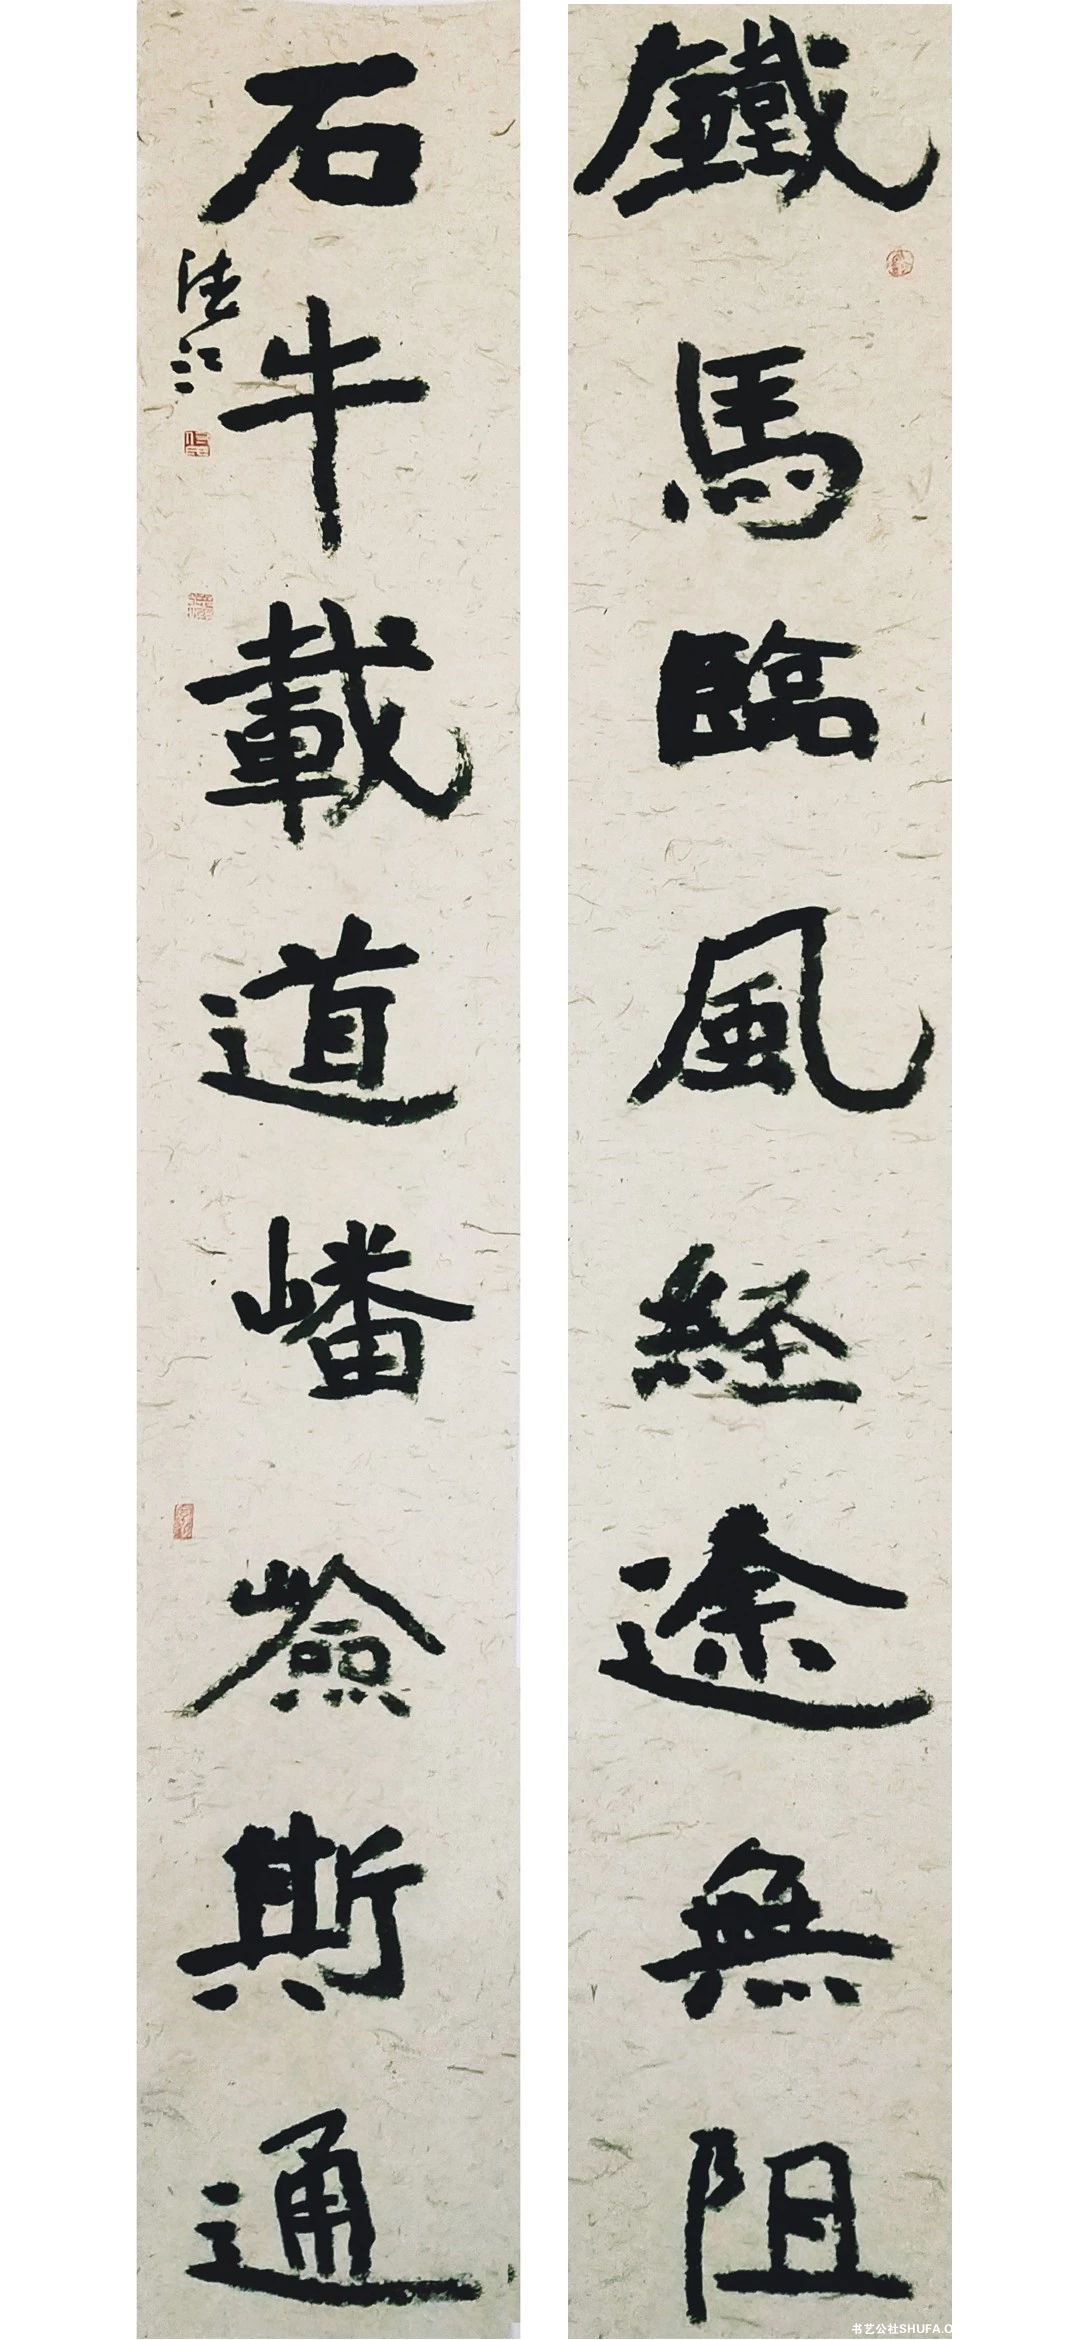 鐵馬臨風経途無阻
石牛載道嶓嶮斯通
德江
书艺公社SHUFA.O